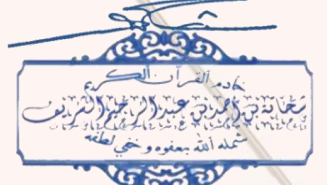 خادم القرآن الكريم
شحاتة بن أحمد بن عبد الرحيم الشريف
شمله الله بعفوه وخفي لطفه